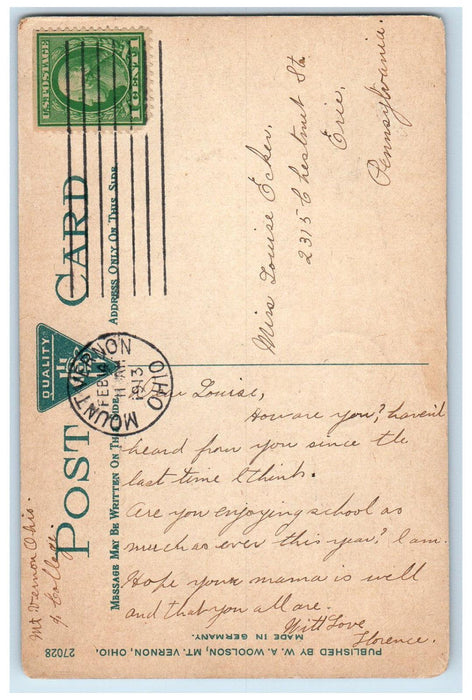 POST CARD
QUALITY
Message May Be Written On This Side
Address Only On This Side
U.S. POSTAGE
1 CENT 1
MOUNT VERNON
FEB 14
11 AM
1913
OHIO
Mt Vernon Ohio.
College.
Dear Louise,
How are you? haven't
heard from you since the
last time I think.
Are you enjoying school as
much as ever this year? I am.
Hope your mama is well
and that you all are.
With Love
Florence.
Miss Louise Ecker.
2315 Chestnut St.
Erie.
Pennsylvania.
27028
PUBLISHED BY W. A. WOOLSON, MT. VERNON, OHIO.
MADE IN GERMANY.